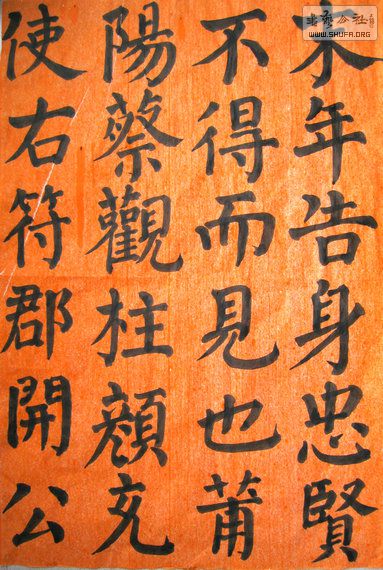 末年告身忠賢
不得而見也莆
陽蔡觀柱顔充
使右符郡開公
書藝公社
WWW.SHUFA.ORG